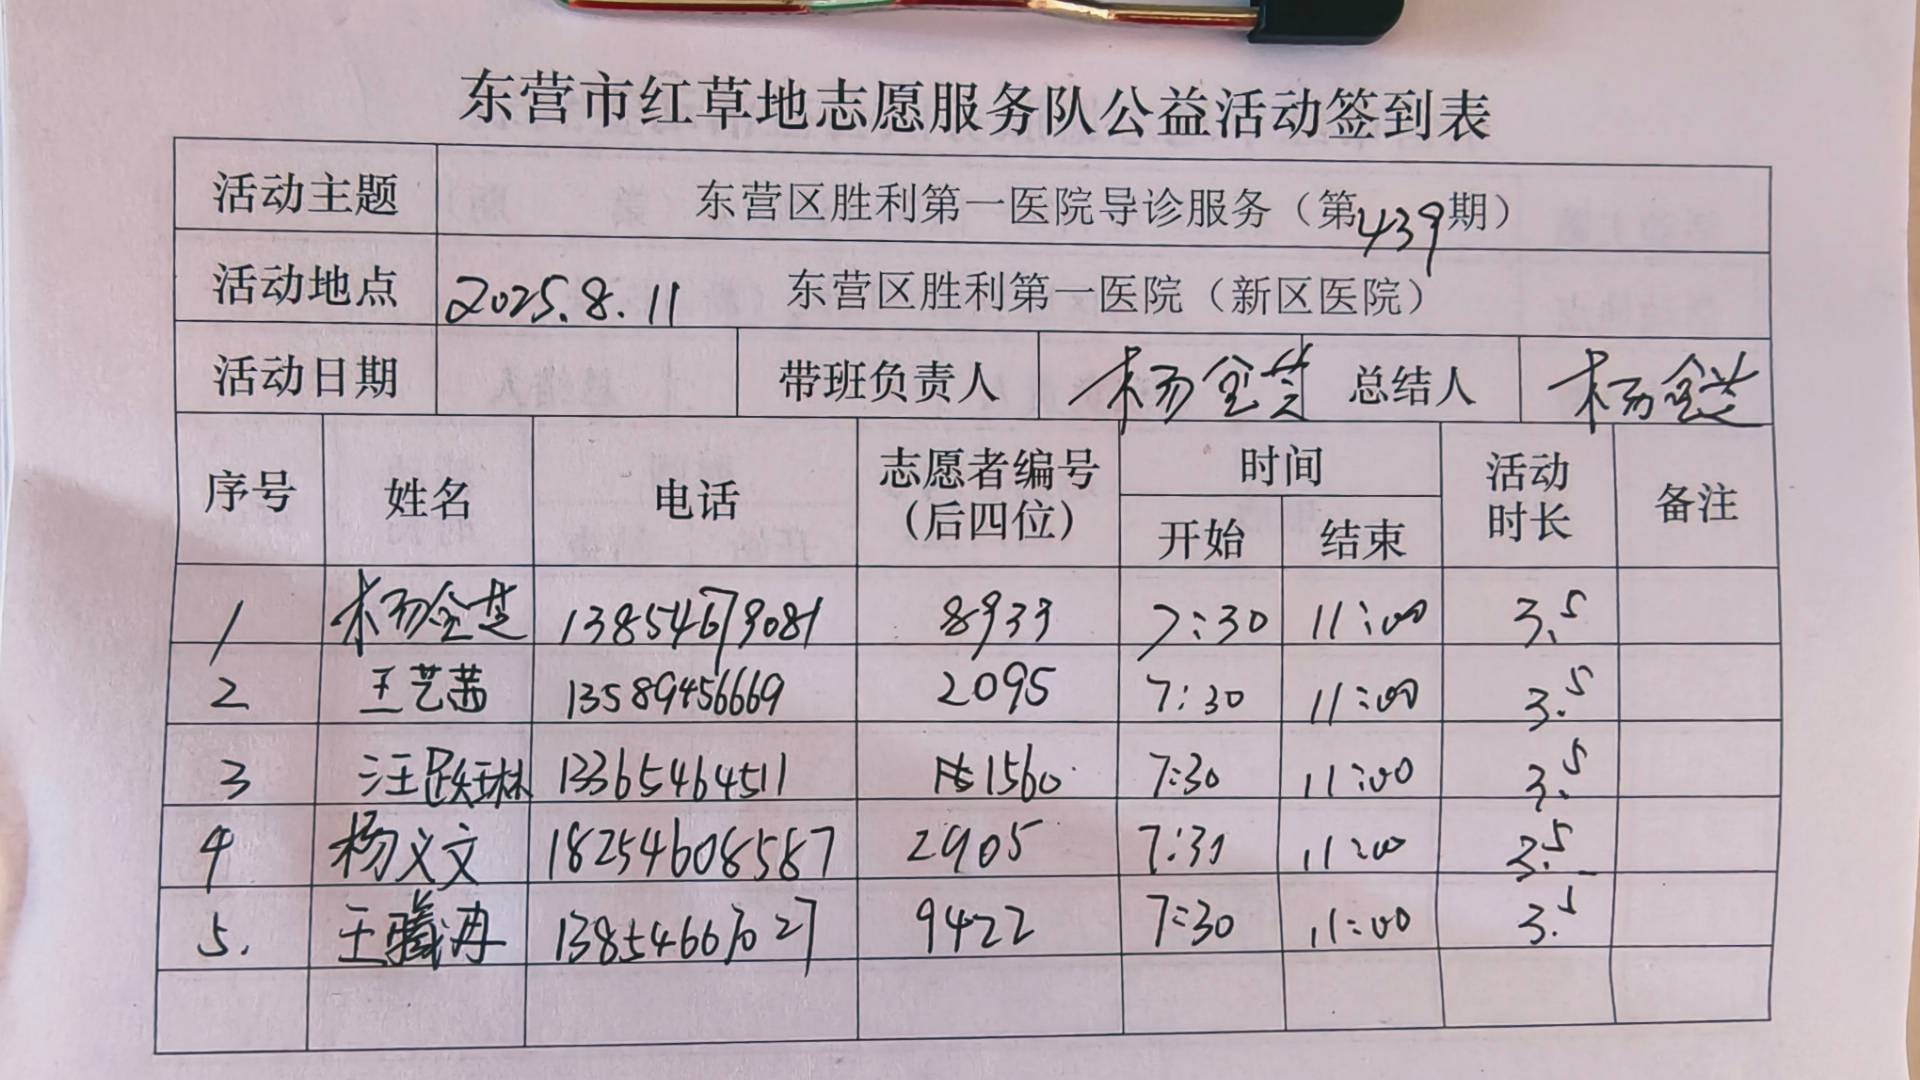 东营市红草地志愿服务队公益活动签到表
活动主题 东营区胜利第一医院导诊服务（第439期）
活动地点 2025.8.11 东营区胜利第一医院（新区医院）
活动日期 带班负责人 杨金芝 总结人 杨金芝
序号 姓名 电话 志愿者编号（后四位） 时间 开始 结束 活动时长 备注
1 杨金芝 13854679081 8939 7:30 11:00 3.5
2 王艺茜 13589456669 2095 7:30 11:00 3.5
3 汪跃琳 13365464511 1560 7:30 11:00 3.5
4 杨义文 18254608587 2905 7:30 11:00 3.5
5. 王 13854667027 9422 7:30 11:00 3.5